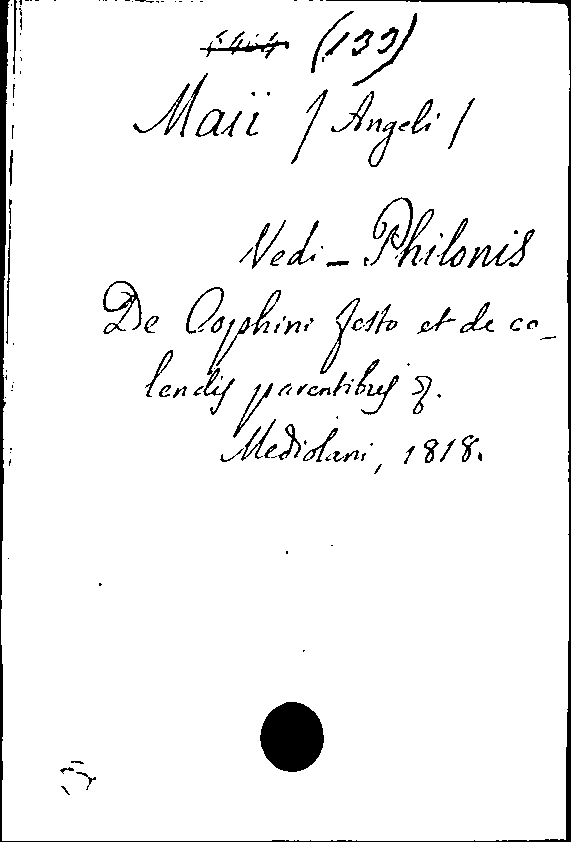 (133)
Maii / Angeli /
Vedi - Philonis
De Cophini festo et de co-
lendis parentibus &.
Mediolani, 1818.